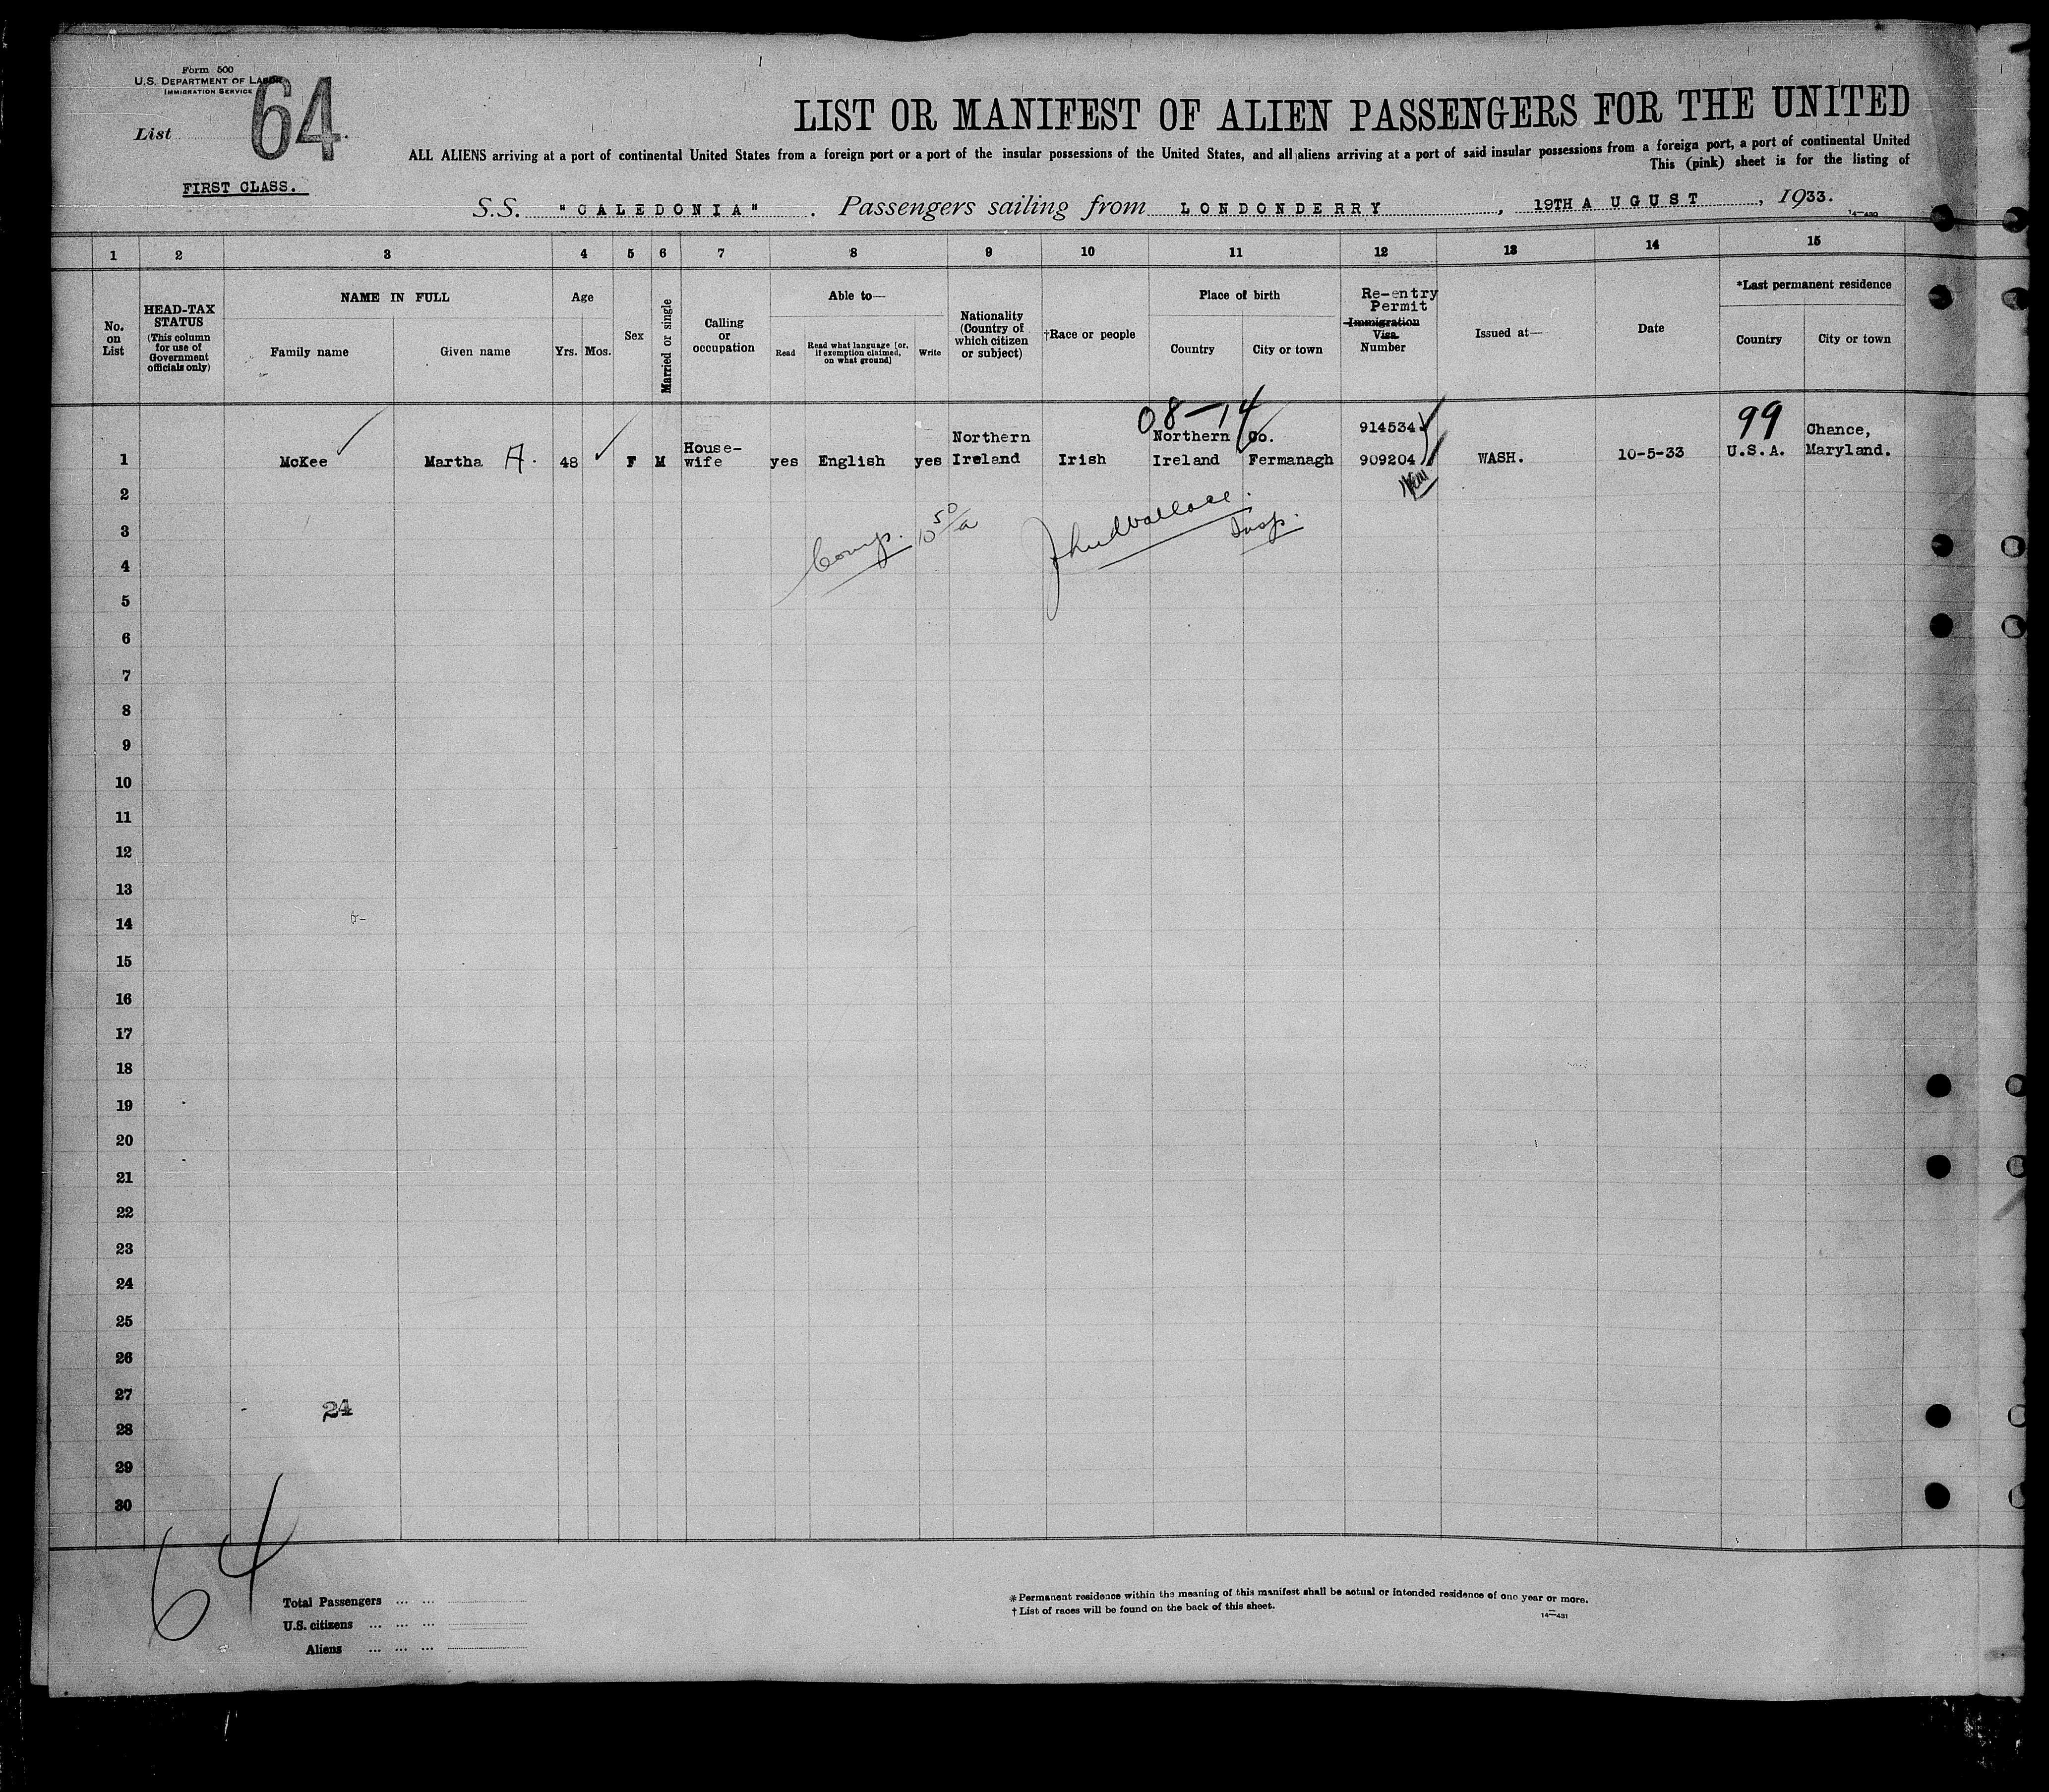 Form 500
U.S. DEPARTMENT OF LABOR
IMMIGRATION SERVICE
List 64
FIRST CLASS.
LIST OR MANIFEST OF ALIEN PASSENGERS FOR THE UNITED
ALL ALIENS arriving at a port of continental United States from a foreign port or a port of the insular possessions of the United States, and all aliens arriving at a port of said insular possessions from a foreign port, a port of continental United
This (pink) sheet is for the listing of
S.S. "CALEDONIA". Passengers sailing from LONDONDERRY, 19TH AUGUST, 1933.
14—430
1 2 3 4 5 6 7 8 9 10 11 12 13 14 15
No. on List
HEAD-TAX STATUS
(This column for use of Government officials only)
NAME IN FULL
Family name
Given name
Age
Yrs. Mos.
Sex
Married or single
Calling or occupation
Able to—
Read
Read what language [or, if exemption claimed, on what ground]
Write
Nationality (Country of which citizen or subject)
†Race or people
Place of birth
Country
City or town
Re-entry Permit
Immigration Visa Number
Issued at—
Date
*Last permanent residence
Country
City or town
08-14
99
1 McKee Martha A. 48 F M House-wife yes English yes Northern Ireland Irish Northern Ireland Co. Fermanagh 914534 909204 WASH. 10-5-33 U.S.A. Chance, Maryland.
Comp. 10 50/a
Insp.
2
3
4
5
6
7
8
9
10
11
12
13
14
15
16
17
18
19
20
21
22
23
24
25
26
27
24
28
29
30
64
Total Passengers ... ...
U.S. citizens ... ... ...
Aliens ... ... ...
* Permanent residence within the meaning of this manifest shall be actual or intended residence of one year or more.
† List of races will be found on the back of this sheet.
14—431